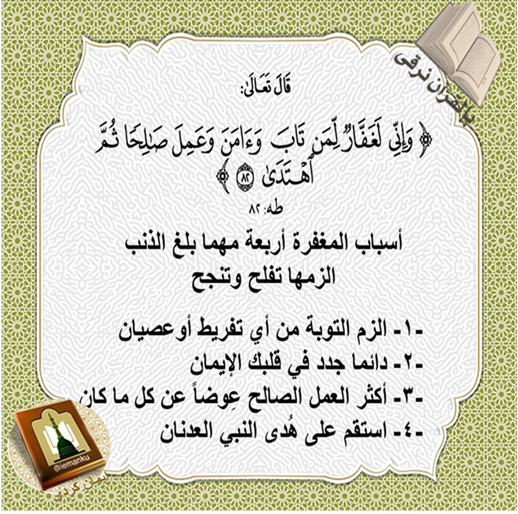 بالقرآن نرقى
قَالَ تَعَالَىٰ:
﴿ وَإِنِّي لَغَفَّارٌ لِّمَن تَابَ وَءَامَنَ وَعَمِلَ صَٰلِحًا ثُمَّ
ٱهْتَدَىٰ ٨٢ ﴾
طه: ٨٢
أسباب المغفرة أربعة مهما بلغ الذنب
الزمها تفلح وتنجح
-١- الزم التوبة من أي تفريط أوعصيان
-٢- دائما جدد في قلبك الإيمان
-٣- أكثر العمل الصالح عِوضاً عن كل ما كان
-٤- استقم على هُدى النبي العدنان
@iemanku